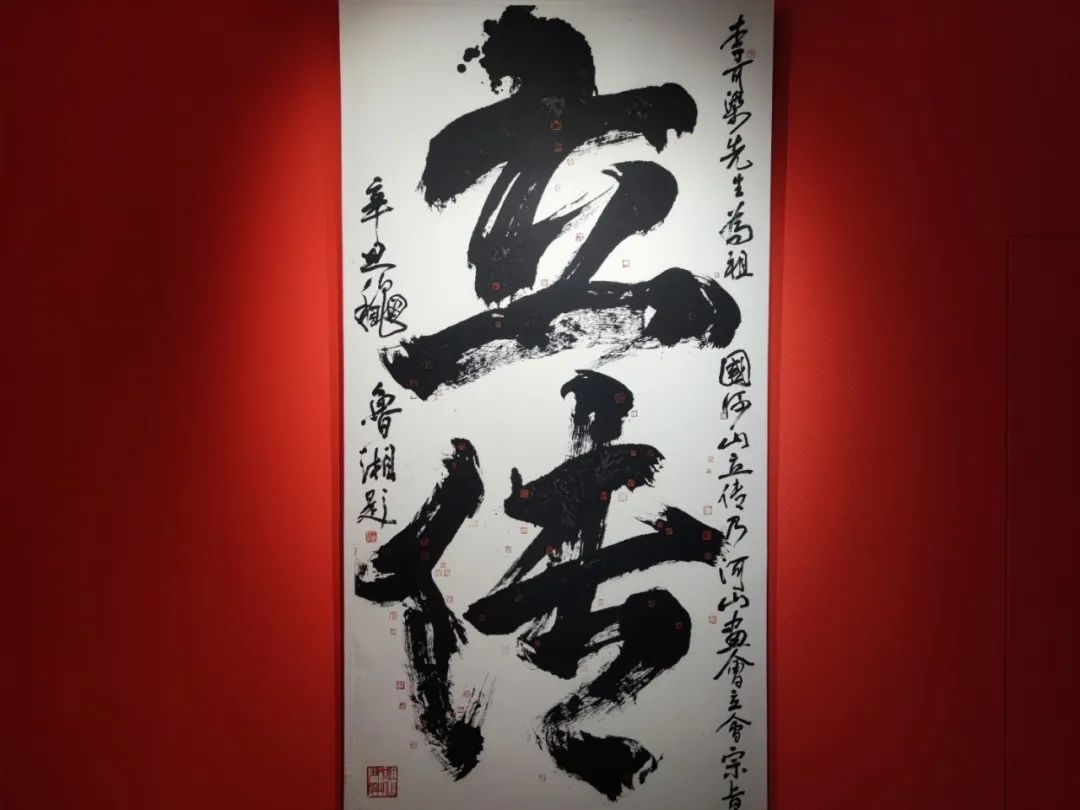 李可染先生為祖國河山立传乃河山畫會立會宗旨
立传
辛丑龝
魯湘题